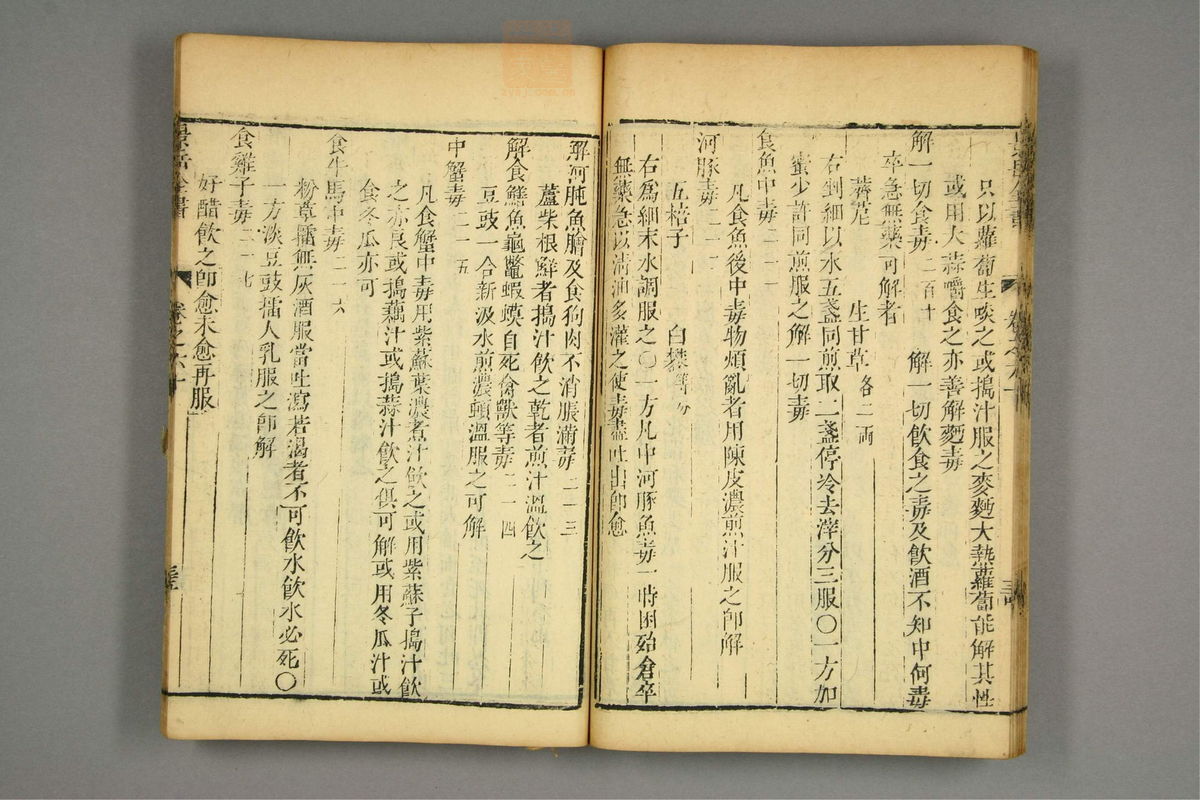 只以蘿蔔生啖之或搗汁服之麥麪大熱蘿蔔能解其性
或用大蒜嚼食之亦善解麪毒
解一切食毒 二百十 解一切飲食之毒及飲酒不知中何毒
卒急無藥可解者
薺苨 生甘草各二两
右剉細以水五盞同煎取二盞停冷去滓分三服〇一方加
蜜少許同煎服之解一切毒
食魚中毒 二一一
凡食魚後中毒物煩亂者用陳皮濃煎汁服之卽解
河豚毒 二一二
五棓子 白礬等分
右為細末水調服之〇一方凡中河豚魚毒一時困殆倉卒
無藥急以清油多灌之使毒盡吐出卽愈
解河肫魚膾及食狗肉不消脹滿毒 二一三
蘆柴根鮮者搗汁飲之乾者煎汁溫飲之
解食鱔魚龜鼈蝦蟆自死禽獸等毒 二一四
豆豉一合新汲水煎濃頓溫服之可解
中蟹毒 二一五
凡食蟹中毒用紫蘇葉濃煮汁飲之或用紫蘇子搗汁飲
之亦良或搗藕汁或搗蒜汁飲之俱可解或用冬瓜汁或
食冬瓜亦可
食牛馬中毒 二一六
粉草擂無灰酒服當吐瀉若渴者不可飲水飲水必死〇
一方淡豆豉擂人乳服之卽解
食雞子毒 二一七
好醋飲之卽愈未愈再服
景岳全書 卷之六十